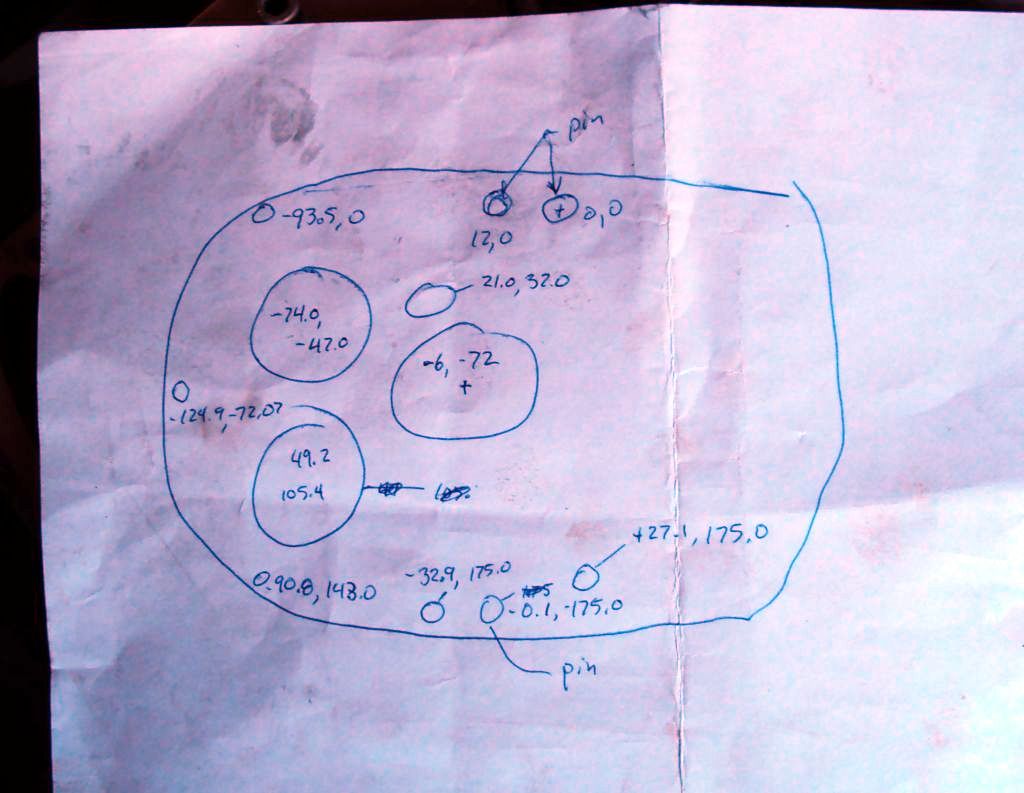 pin
-93.5, 0
0,0
12,0
21.0, 32.0
-74.0,
-47.0
-6, -72
+
-124.9, -72.07
49.2
105.4
+27.1, 175.0
-32.9, 175.0
-90.8, 143.0
-0.1, -175.0
pin